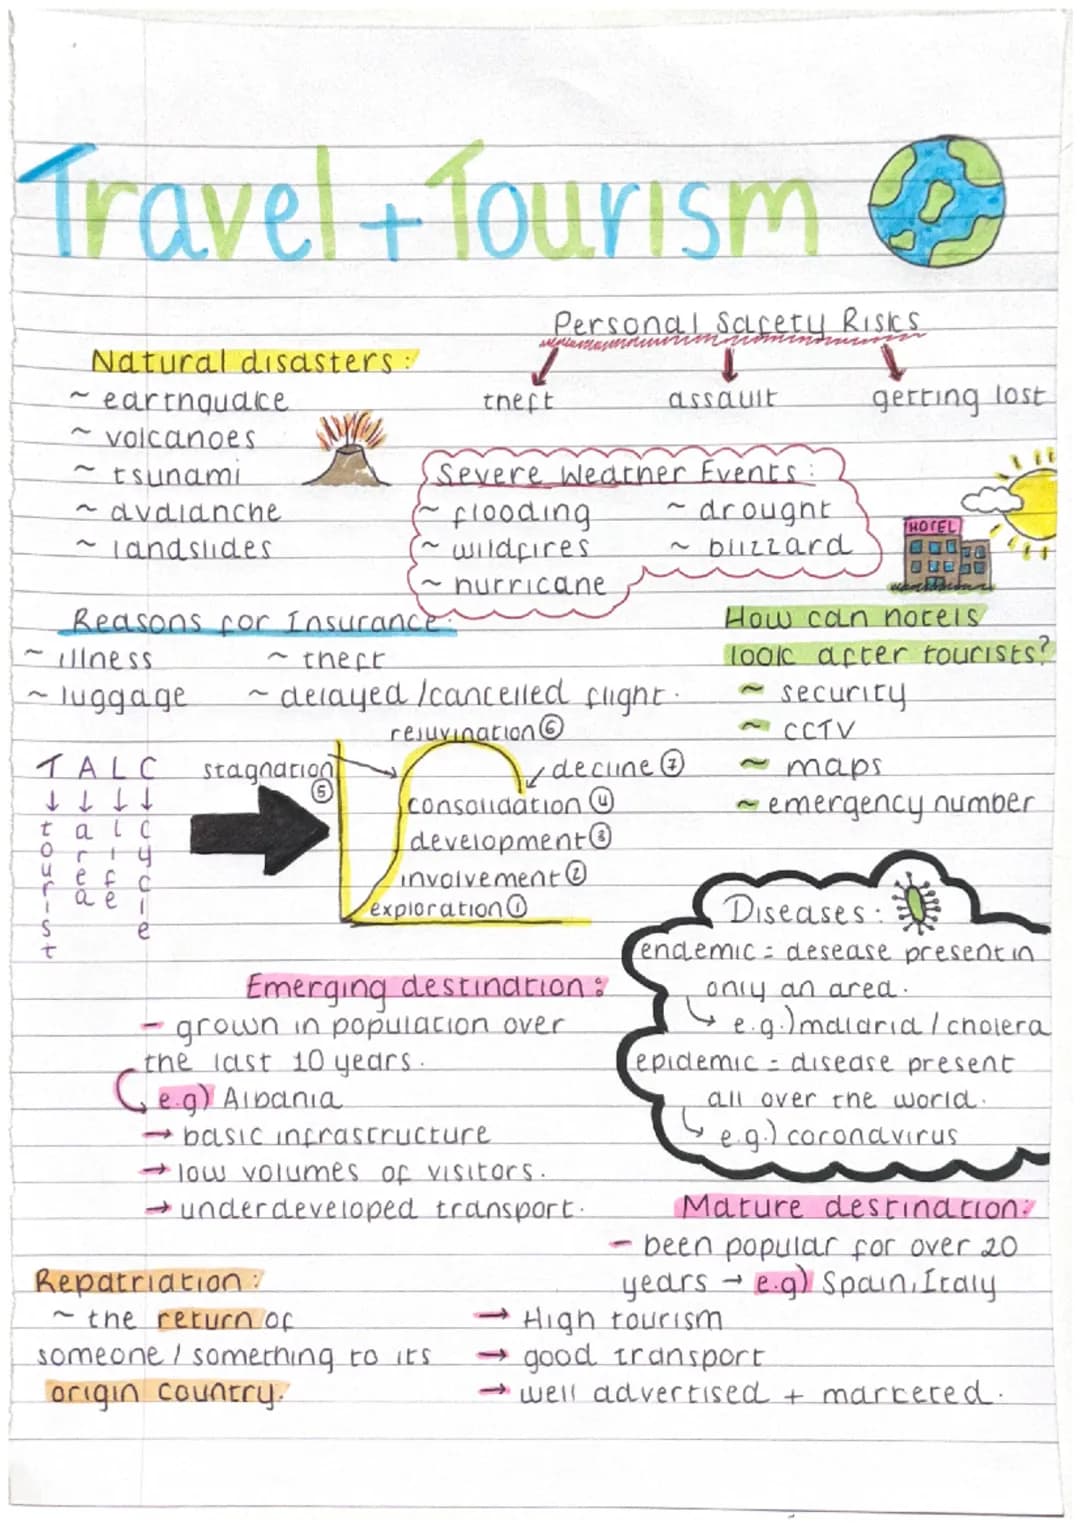 Travel + Tourism
Personal Safety Risks
theft
assault
getting lost
Natural disasters:
~ earthquake
~ volcanoes
~ tsunami
~ avalanche
~ landslides
Severe Weather Events:
~ flooding
~ drought
~ wildfires
~ blizzard
~ hurricane
HOTEL
Reasons for Insurance:
~ illness
~ theft
~ luggage
~ delayed/cancelled flight.
How can hotels
look after tourists?
~ security
~ CCTV
~ maps
~ emergency number
T A L C
tourist
area
life
cycle
rejuvination ⑥
stagnation
⑤
decline ⑦
consolidation ④
development ③
involvement ②
exploration ①
Diseases:
endemic = desease present in
only an area.
e.g.) malaria / cholera
epidemic = disease present
all over the world.
e.g.) coronavirus
Emerging destination:
- grown in population over
the last 10 years.
e.g) Albania
→ basic infrastructure
→ low volumes of visitors.
→ underdeveloped transport.
Mature destination:
- been popular for over 20
years → e.g) Spain, Italy
→ High tourism
→ good transport
→ well advertised + marketed.
Repatriation:
~ the return of
someone / something to its
origin country.